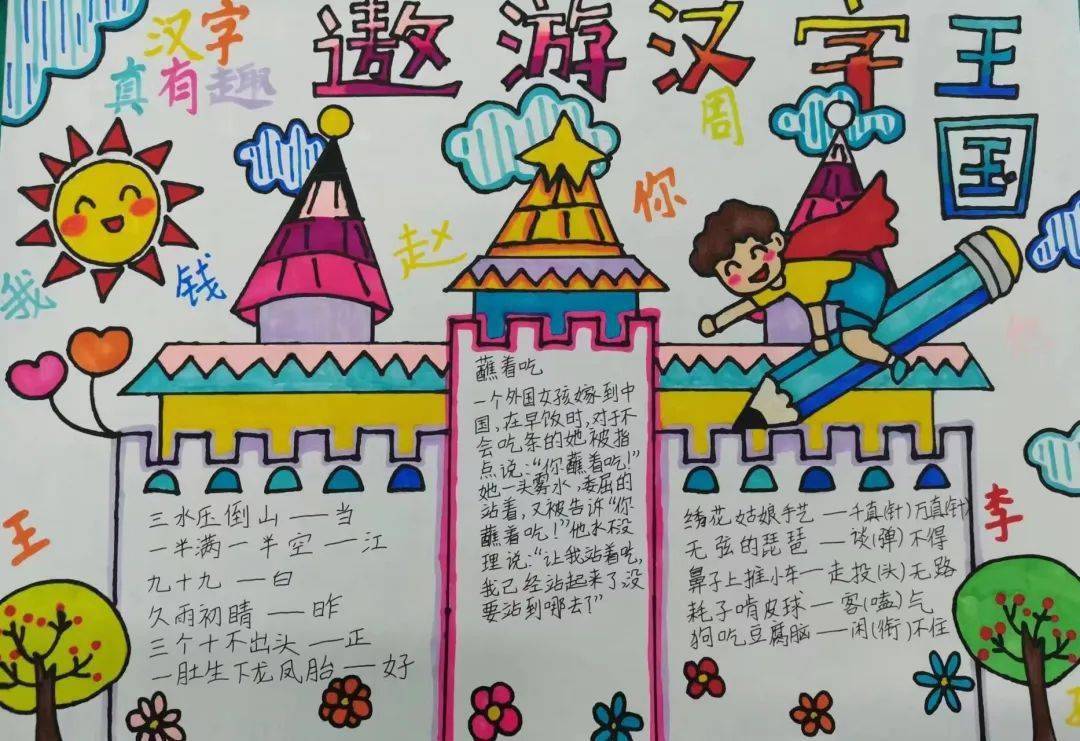 汉字
真有趣
遨游汉字王
国
周
你
赵
钱
我
王
李
蘸着吃
一个外国女孩嫁到中
国,在早饭时,对于不
会吃条的她被指
点说:“你蘸着吃!”
她一头雾水,委屈的
站着,又被告诉“你
蘸着吃!”他水没
理说:“让我站着吃,
我已经站起来了,没
要沾到哪去?”
三水压倒山——当
一半满一半空——江
九十九——白
久雨初晴——昨
三个十不出头——正
一肚生下龙凤胎——好
绣花姑娘手艺——千真(针)万真(针)
无弦的琵琶——谈(弹)不得
鼻子上推小车——走投(头)无路
耗子啃皮球——客(嗑)气
狗吃豆腐脑——闲(衔)不住